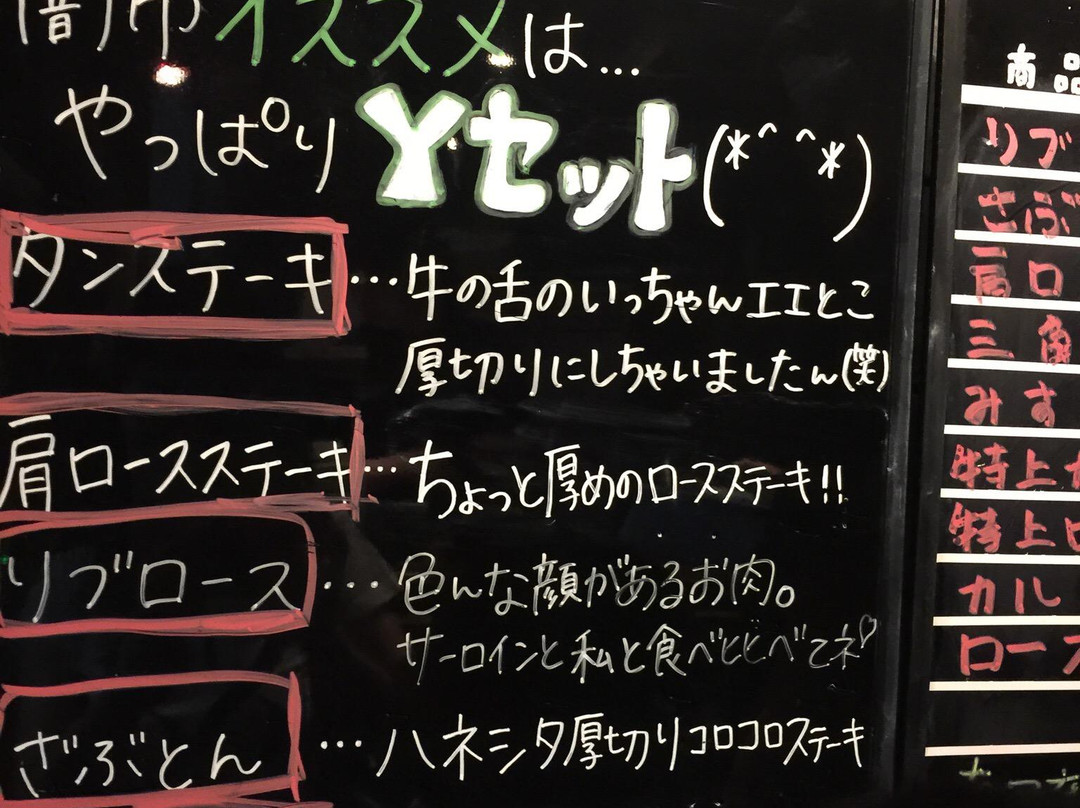 闇市イススメは...
やっぱりYセット(*^^*)
タンステーキ…牛の舌のいっちゃんエエとこ
厚切りにしちゃいましたん(笑)
肩ロースステーキ…ちょっと厚めのロースステーキ!!
リブロース…色んな顔があるお肉。
サーロインと私と食べ
ざぶとん…ハネシタ厚切りコロコロステーキ
商品
リブ
さぶ
肩ロ
三角
みす
特上カ
特上ロ
カル
ロース